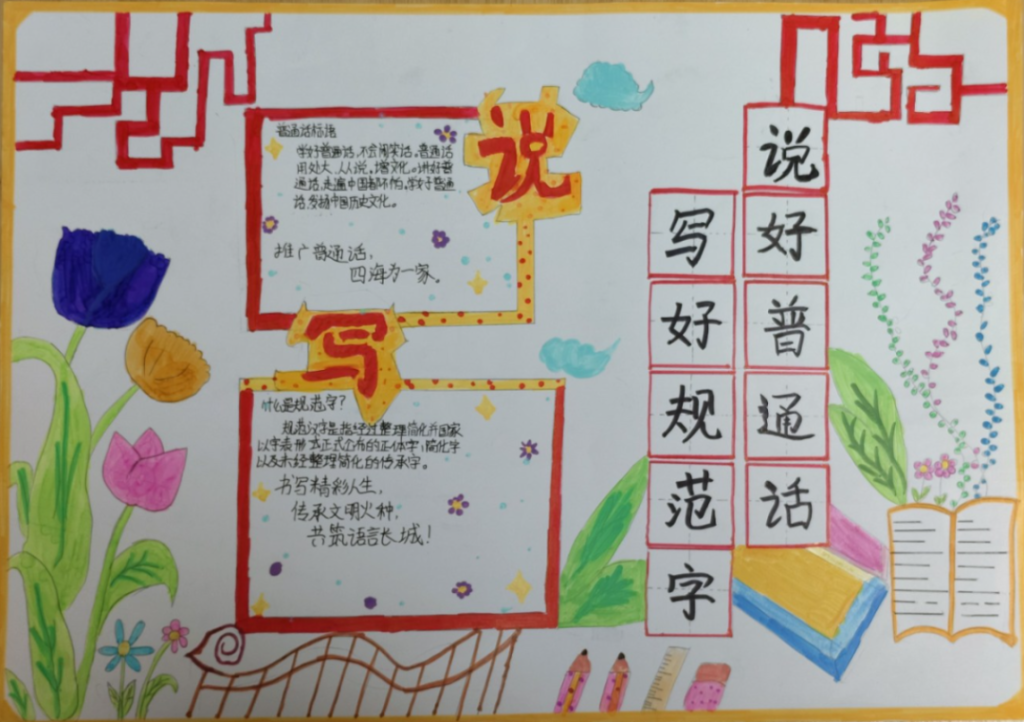 说好普通话
写好规范字
说
普通话标语
学好普通话,不会闹笑话。普通话
用处大,人人说,增文化。讲好普
通话,走遍中国都不怕。学好普通
话,发扬中国历史文化。
推广普通话,
四海为一家。
写
什么是规范字?
规范汉字是指经过整理简化并国家
以字表形式正式公布的正体字、简化字
以及未经整理简化的传承字。
书写精彩人生,
传承文明火种,
共筑语言长城!